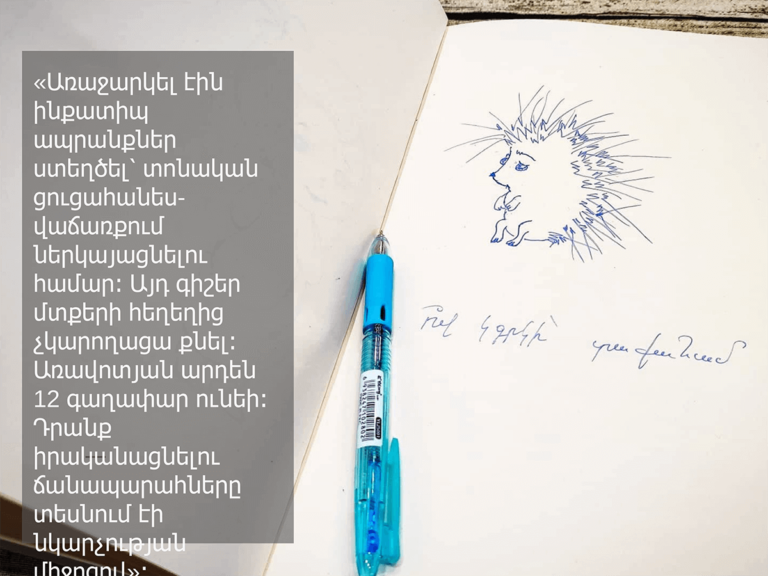 «Առաջարկել էին
ինքատիպ
ապրանքներ
ստեղծել՝ տոնական
ցուցահանես-
վաճառքում
ներկայացնելու
համար: Այդ գիշեր
մտքերի հեղեղից
չկարողացա քնել:
Առավոտյան արդեն
12 գաղափար ունեի:
Դրանք
իրականացնելու
ճանապարահները
տեսնում էի
նկարչության
միջոցով»:
Ով կգրկի